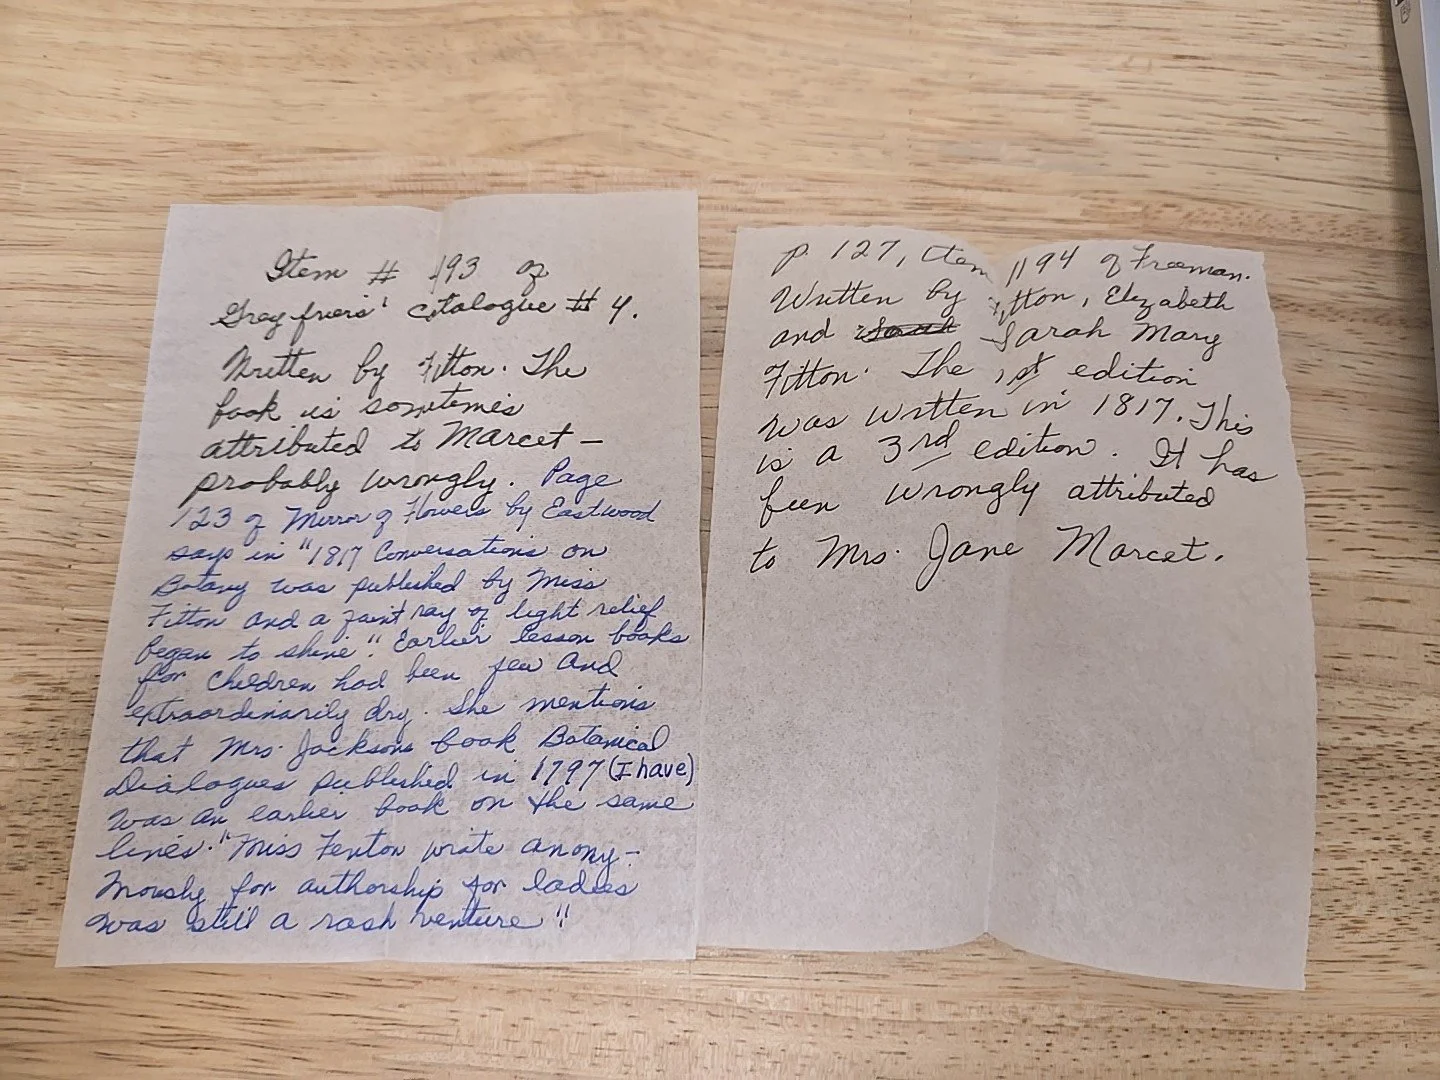 Item # 193 of
Greyfriers' catalogue # 4.
Written by Fitton. The
book is sometimes
attributed to Marcet —
probably wrongly. Page
123 of Mirror of Flowers by Eastwood
says in "1817 Conversations on
Botany was published by Miss
Fitton and a faint ray of light relief
began to shine". Earlier lesson books
for children had been few and
extraordinarily dry. She mentions
that Mrs. Jacksons book Botanical
Dialogues published in 1797 (I have)
was an earlier book on the same
lines. "Miss Fenton wrote anony-
mously for authorship for ladies
was still a rash venture"
p. 127, Item 1194 of Freeman.
Written by Fitton, Elizabeth
and Sarah Mary
Fitton. The 1st edition
was written in 1817. This
is a 3rd edition. It has
been wrongly attributed
to Mrs. Jane Marcet.